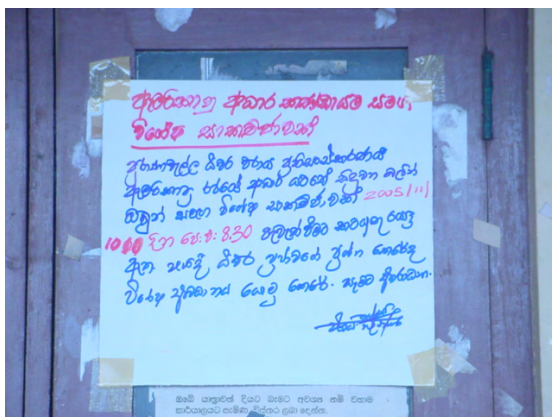 ඇමරිකානු ආධාර කණ්ඩායම සමග
විශේෂ සාකච්ඡාවක්
ධීවර වරාය ප්‍රතිසංස්කරණය
ඇමරිකානු රජයේ ආධාර යටතේ සිදුවන බැවින්
ඔවුන් සමග විශේෂ සාකච්ඡාවක් 2005/11/
10 දින පෙ.ව. 8.30 පැවැත්වීමට කටයුතු යොදා
ඇත. ධීවර ප්‍රජාවගේ ප්‍රශ්න කෙරේද
විශේෂ අවධානය යොමු කෙරේ. සැමට ආරාධනා.
ඔබේ යාත්‍රාවන් දියට බෑමට අවශ්‍ය නම් වහාම
කාර්යාලයට පැමිණ විස්තර ලබා දෙන්න.